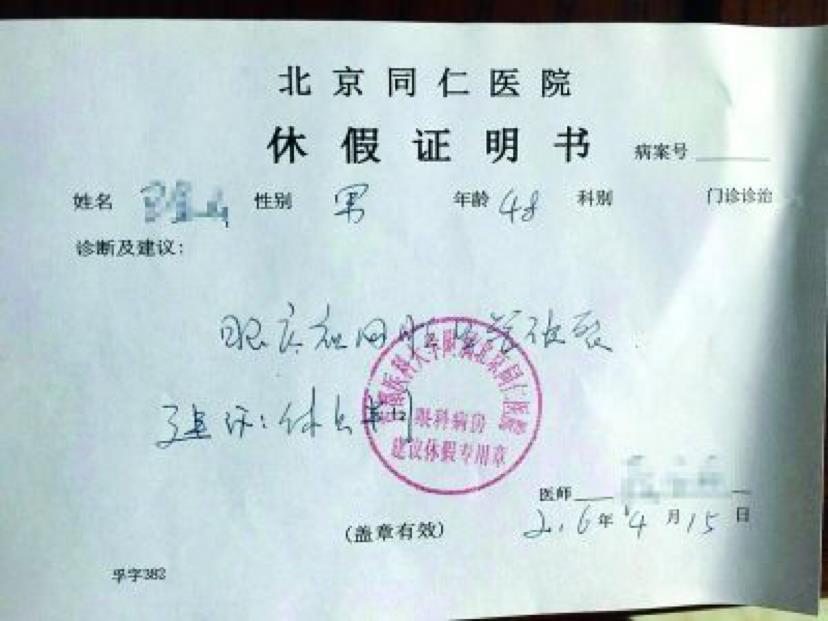 北京同仁医院
休假证明书 病案号
姓名 性别 男 年龄 48 科别 门诊诊治
诊断及建议:
建议:休息
首都医科大学附属北京同仁医院
眼科病房
建议休假专用章
医师
2016年4月15日
(盖章有效)
孚字382